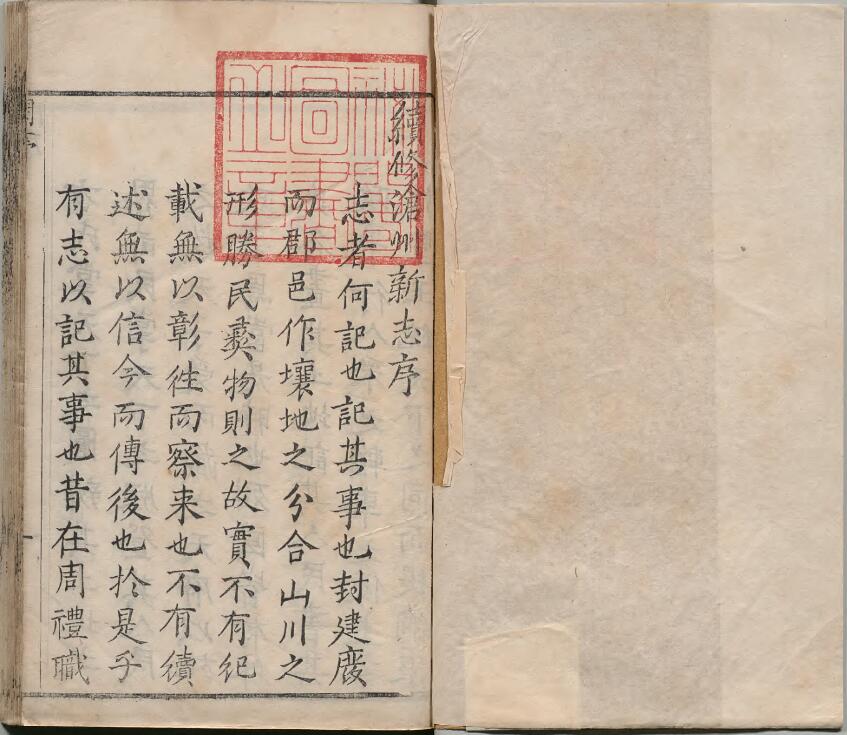 續修滄州新志序
志者何記也記其事也封建廢
而郡邑作壤地之分合山川之
形勝民彜物則之故實不有紀
載無以彰徃而察来也不有續
述無以信今而傳後也扵是乎
有志以記其事也昔在周禮職